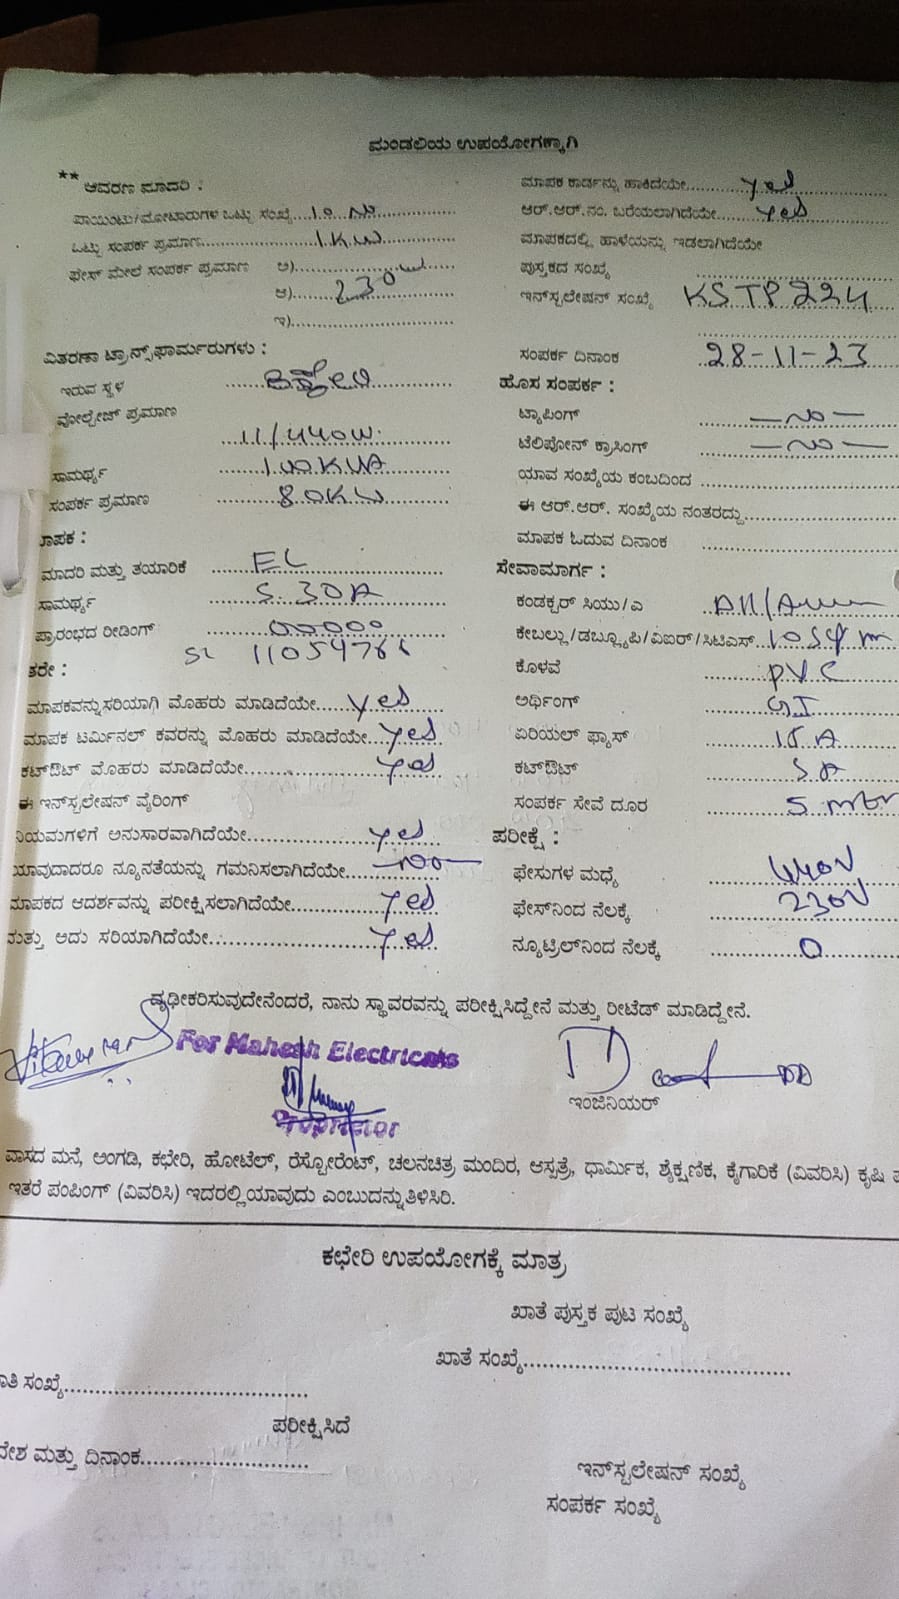 ಮಂಡಲಿಯ ಉಪಯೋಗಕ್ಕಾಗಿ
** ಆವರಣ ಮಾದರಿ :
ಪಾಯಿಂಟು/ಮೋಟಾರುಗಳ ಒಟ್ಟು ಸಂಖ್ಯೆ 10 No
ಒಟ್ಟು ಸಂಪರ್ಕ ಪ್ರಮಾಣ 1KW
ಫೇಸ್ ಮೇಲೆ ಸಂಪರ್ಕ ಪ್ರಮಾಣ ಅ)
ಆ) 230
ಇ)
ವಿತರಣಾ ಟ್ರಾನ್ಸ್‌ಫಾರ್ಮರುಗಳು :
ಇರುವ ಸ್ಥಳ
ವೋಲ್ಟೇಜ್ ಪ್ರಮಾಣ
11/440W
ಸಾಮರ್ಥ್ಯ 100KVA
ಸಂಪರ್ಕ ಪ್ರಮಾಣ 80KW
ಾಪಕ :
ಮಾದರಿ ಮತ್ತು ತಯಾರಿಕೆ EL
ಸಾಮರ್ಥ್ಯ 5-30A
ಪ್ರಾರಂಭದ ರೀಡಿಂಗ್ 00000
SL
ತರೇ :
ಮಾಪಕವನ್ನು ಸರಿಯಾಗಿ ಮೊಹರು ಮಾಡಿದೆಯೇ yes
ಮಾಪಕ ಟರ್ಮಿನಲ್ ಕವರನ್ನು ಮೊಹರು ಮಾಡಿದೆಯೇ yes
ಕಟ್‌ಔಟ್ ಮೊಹರು ಮಾಡಿದೆಯೇ yes
ಈ ಇನ್‌ಸ್ಟಲೇಷನ್ ವೈರಿಂಗ್
ನಿಯಮಗಳಿಗೆ ಅನುಸಾರವಾಗಿದೆಯೇ yes
ಯಾವುದಾದರೂ ನ್ಯೂನತೆಯನ್ನು ಗಮನಿಸಲಾಗಿದೆಯೇ —No—
ಮಾಪಕದ ಆದರ್ಶವನ್ನು ಪರೀಕ್ಷಿಸಲಾಗಿದೆಯೇ yes
ಮತ್ತು ಅದು ಸರಿಯಾಗಿದೆಯೇ yes
ಮಾಪಕ ಕಾರ್ಡನ್ನು ಹಾಕಿದೆಯೇ yes
ಆರ್.ಆರ್.ನಂ. ಬರೆಯಲಾಗಿದೆಯೇ yes
ಮಾಪಕದಲ್ಲಿ ಹಾಳೆಯನ್ನು ಇಡಲಾಗಿದೆಯೇ
ಪುಸ್ತಕದ ಸಂಖ್ಯೆ
ಇನ್‌ಸ್ಟಲೇಷನ್ ಸಂಖ್ಯೆ KSTP224
ಸಂಪರ್ಕ ದಿನಾಂಕ 28-11-23
ಹೊಸ ಸಂಪರ್ಕ :
ಟ್ಯಾಪಿಂಗ್ —No—
ಟೆಲಿಪೋನ್ ಕ್ರಾಸಿಂಗ್ —No—
ಯಾವ ಸಂಖ್ಯೆಯ ಕಂಬದಿಂದ
ಈ ಆರ್.ಆರ್. ಸಂಖ್ಯೆಯ ನಂತರದ್ದು
ಮಾಪಕ ಓದುವ ದಿನಾಂಕ
ಸೇವಾಮಾರ್ಗ :
ಕಂಡಕ್ಟರ್ ಸಿಯು/ಎ
ಕೇಬಲ್ಲು/ಡಬ್ಲ್ಯೂಪಿ/ವಿಐಆರ್/ಸಿಟಿಎಸ್
ಕೊಳವೆ PVC
ಅರ್ಥಿಂಗ್ GI
ಏರಿಯಲ್ ಫ್ಯೂಸ್ 15A
ಕಟ್‌ಔಟ್ 5A
ಸಂಪರ್ಕ ಸೇವೆ ದೂರ 5 mtr
ಪರೀಕ್ಷೆ :
ಫೇಸುಗಳ ಮಧ್ಯೆ 440V
ಫೇಸ್‌ನಿಂದ ನೆಲಕ್ಕೆ 230V
ನ್ಯೂಟ್ರಲ್‌ನಿಂದ ನೆಲಕ್ಕೆ 0
ದೃಢೀಕರಿಸುವುದೇನೆಂದರೆ, ನಾನು ಸ್ಥಾವರವನ್ನು ಪರೀಕ್ಷಿಸಿದ್ದೇನೆ ಮತ್ತು ರೀಟೆಡ್ ಮಾಡಿದ್ದೇನೆ.
For Mahesh Electricals
Proprietor
ಇಂಜಿನಿಯರ್
ವಾಸದ ಮನೆ, ಅಂಗಡಿ, ಕಛೇರಿ, ಹೋಟೆಲ್, ರೆಸ್ಟೋರೆಂಟ್, ಚಲನಚಿತ್ರ ಮಂದಿರ, ಆಸ್ಪತ್ರೆ, ಧಾರ್ಮಿಕ, ಶೈಕ್ಷಣಿಕ, ಕೈಗಾರಿಕೆ (ವಿವರಿಸಿ) ಕೃಷಿ
ಇತರೆ ಪಂಪಿಂಗ್ (ವಿವರಿಸಿ) ಇದರಲ್ಲಿ ಯಾವುದು ಎಂಬುದನ್ನು ತಿಳಿಸಿರಿ.
ಕಛೇರಿ ಉಪಯೋಗಕ್ಕೆ ಮಾತ್ರ
ಖಾತೆ ಪುಸ್ತಕ ಪುಟ ಸಂಖ್ಯೆ
ಖಾತೆ ಸಂಖ್ಯೆ
ಾತಿ ಸಂಖ್ಯೆ
ಪರೀಕ್ಷಿಸಿದೆ
ದೇಶ ಮತ್ತು ದಿನಾಂಕ
ಇನ್‌ಸ್ಟಲೇಷನ್ ಸಂಖ್ಯೆ
ಸಂಪರ್ಕ ಸಂಖ್ಯೆ